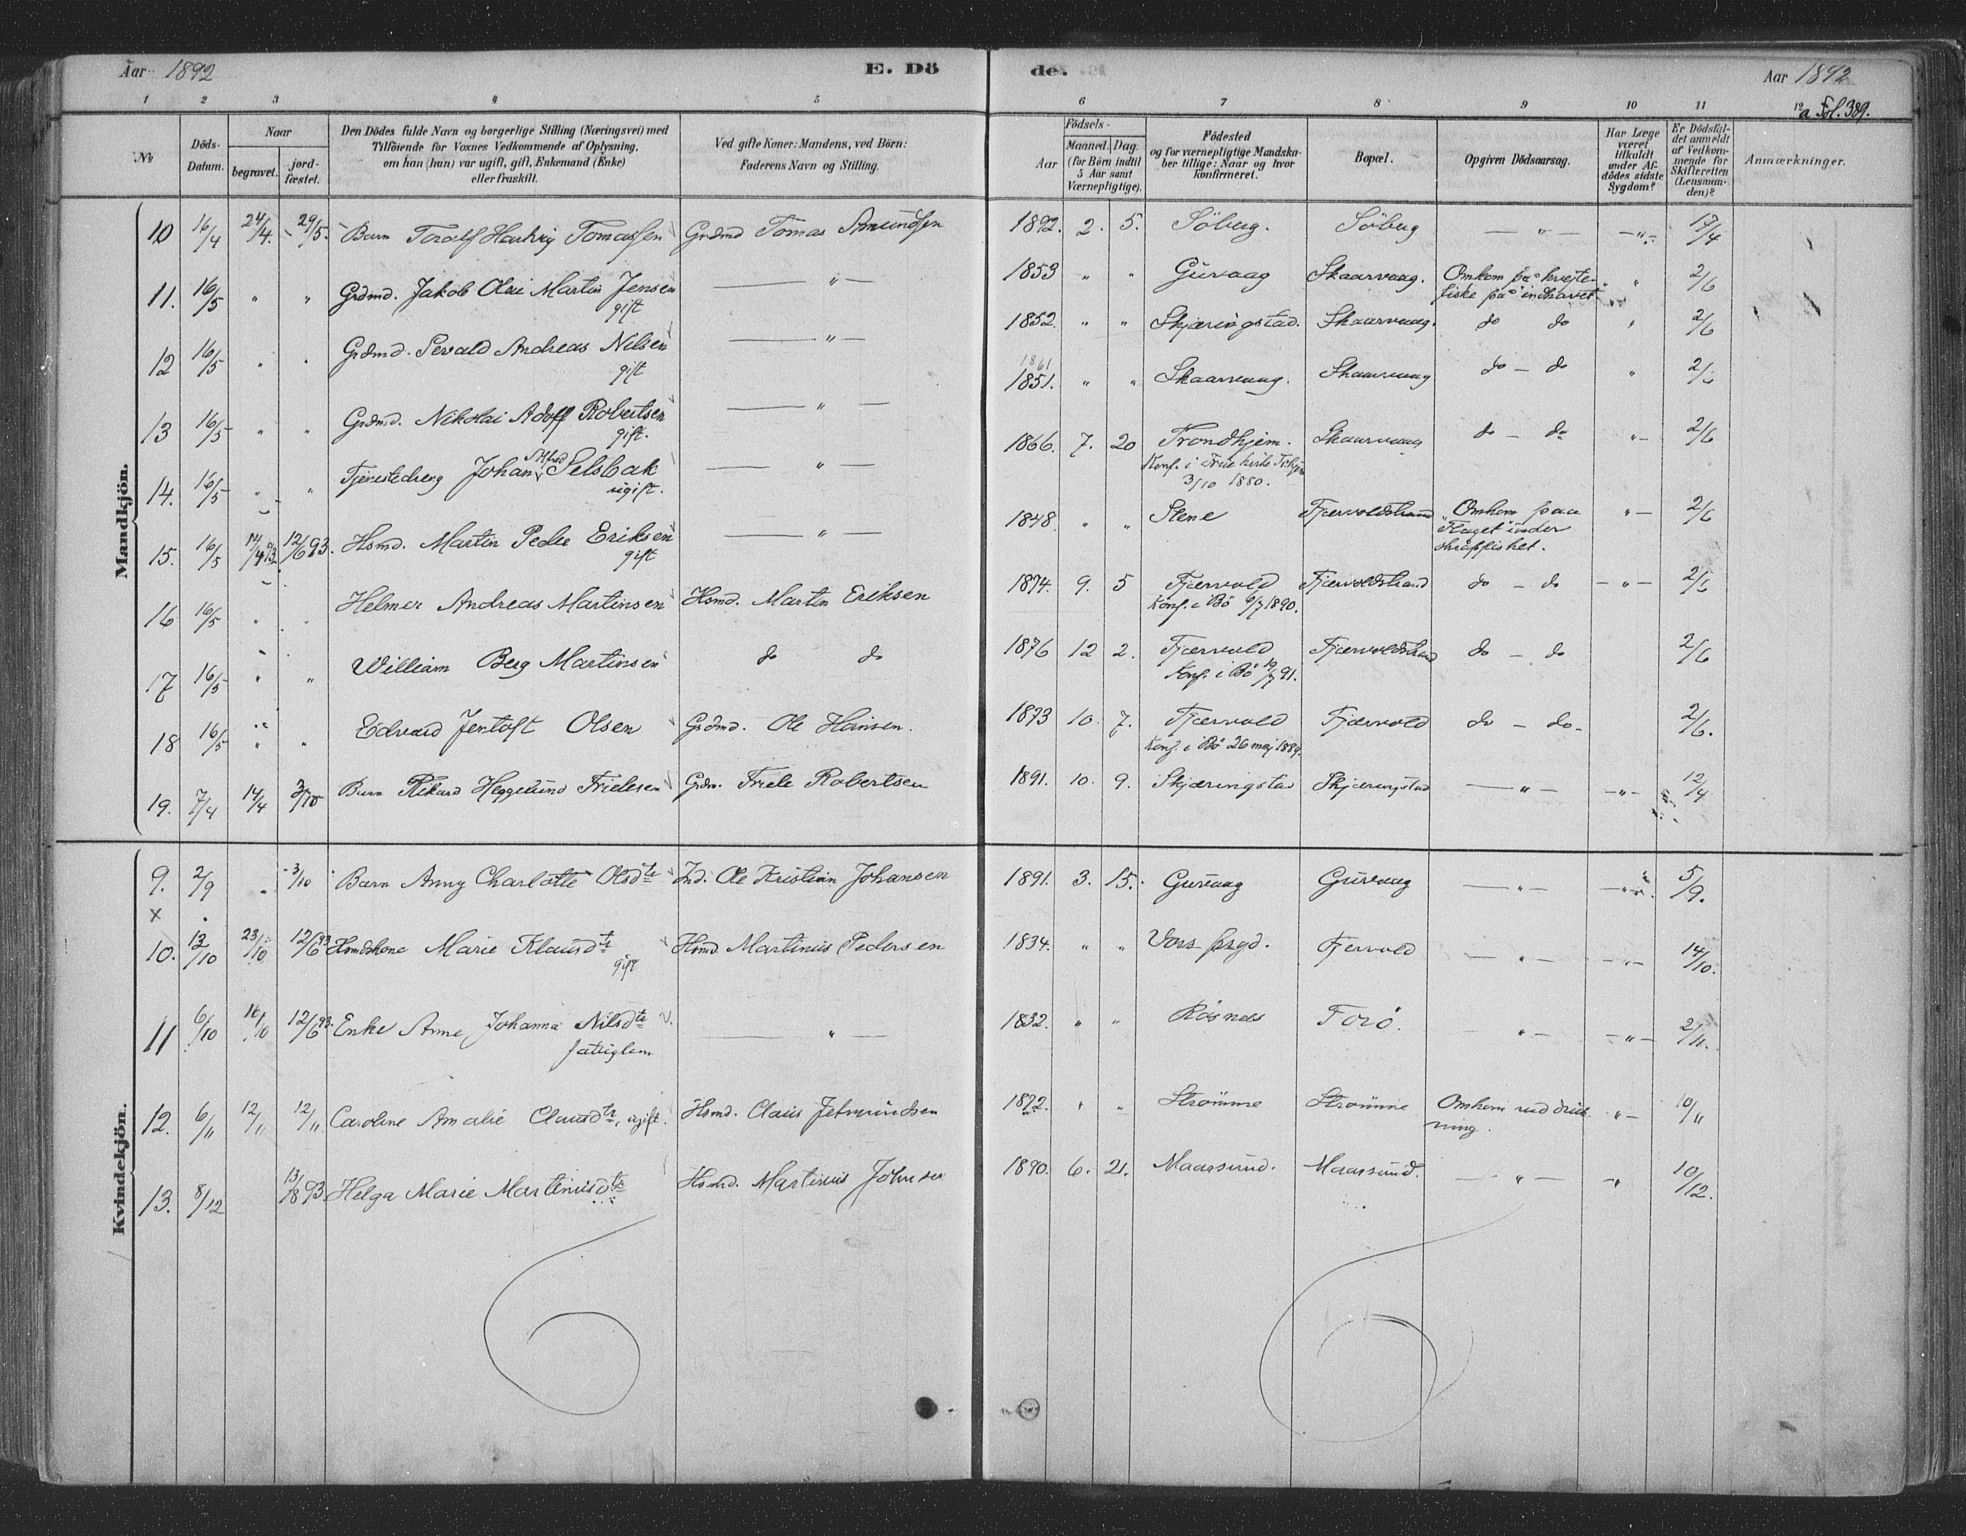 Aar 1892
E. Dö
de.
Aar 1892
a Fol. 389.
1 2 3 4 5 6 7 8 9 10 11 12
No
Döds-Datum.
Naar
begravet.
jord-fæstet.
Den Dödes fulde Navn og borgerlige Stilling (Næringsvei) med
Tilföiende for Voxnes Vedkommende af Oplysning,
om han (hun) var ugift, gift, Enkemand (Enke)
eller fraskilt.
Ved gifte Koner: Mandens, ved Börn:
Faderens Navn og Stilling.
Födsels-
Aar
Maaned. Dag
(for Börn indtil
5 Aar samt
Værnepligtige).
Födested
og for værnepligtige Mandska-
ber tillige: Naar og hvor
konfirmeret.
Bopæl.
Opgiven Dödsaarsag.
Har Læge
været
tilkaldt
under Af-
dödes sidste
Sygdom?
Er Dödsfal-
det anmeldt
af Vedkom-
mende for
Skifteretten
(Lensman-
den)?
Anmærkninger.
Mandkjön.
10 16/4 24/4. 29/5. Barn Toralf Hartvig Tomassen Grdmd Tomas Amundsen 1892. 2. 5. Söberg. Söberg — " — — " — 17/4
11. 16/5 " " Grdmd. Jakob Olai Martin Jensen — " — 1853 " " Guvaag Skaarvaag. Omkom paa kveite- " 2/6
gift fiske paa indhavet
12 16/5 " " Grdmd. Sevald Andreas Nilsen — " — 1852. " " Skjæringstad. Skaarvaag. do do " 2/6
gift
1861
13 16/5 " " Grdmd. Nikolai Adolf Robertsen — " — 1851. " " Skaarvaag. Skaarvaag do — do " 2/6
gift.
Alfred
14. 16/5 " " Tjenestedreng Johan Selsbak — " — 1866. 7. 20 Trondhjem. Skaarvaag do — do " — 2/6
ugift. Konf. i Frue kirke Trhjem
3/10 1880.
15. 16/5 14/4 93. 12/6 93. Hsmd. Martin Peder Eriksen — " — 1848. " " Stene Fjærvoldstrand Omkom paa " — 2/6
gift "Flaget" under
skreifisket.
16 16/5 " " Helmer Andreas Martinsen Hsmd. Martin Eriksen 1874. 9. 5 Fjærvold Fjærvoldstrand do — do — " — 2/6
Konf. i Bö 6/7 1890.
17 16/5 " " William Berg Martinsen do do 1876 12 2. Fjærvold Fjærvoldstrand do — do 2/6
Konf. i Bö 19/7 91.
18 16/5 " " Edvard Jentoft Olsen Grdmd. Ole Hansen. 1873 10. 7. Fjærvold Fjærvold do — do — 2/6.
Konf. i Bö 26 maj 1889.
19. 7/4 14/4 3/10 Barn Rikard Heggelund Frielesen Grdm. Friele Robertsen 1891. 10. 9. Skjæringstad Skjæringstad — " — — " — 12/4
Kvindekjön.
9. 2/9 " 3/10 Barn Anny Charlotte Olsdtr Ind. Ole Kristian Johansen 1891. 3. 15. Guvaag Guvaag — " — — " — 5/9.
x
10. 13/10 23/10 12/6 93 Hsmdskone Marie Klausdtr Hsmd. Martinus Pedersen 1834. " " Vors prgd. Fjervold — " — — " — 14/10.
gift
11 6/10 16/10 12/6 93. Enke Anne Johanna Nilsdtr — " — 1832. " " Rösnes Forö. " — — " — 2/11.
fattiglem
12. 6/11 12/11 12/11 Caroline Amalie Clausdtr, ugift. Hsmd. Claus Jetmundsen 1872. " " Strömme Strömme Omkom ved druk- " — 10/11
ning.
13. 8/12 13/8 93 Helga Marie Martinusdtr Hsmd. Martinus Johnsen 1890. 6. 21. Maarsund. Maarsund. — " — — " 10/12.